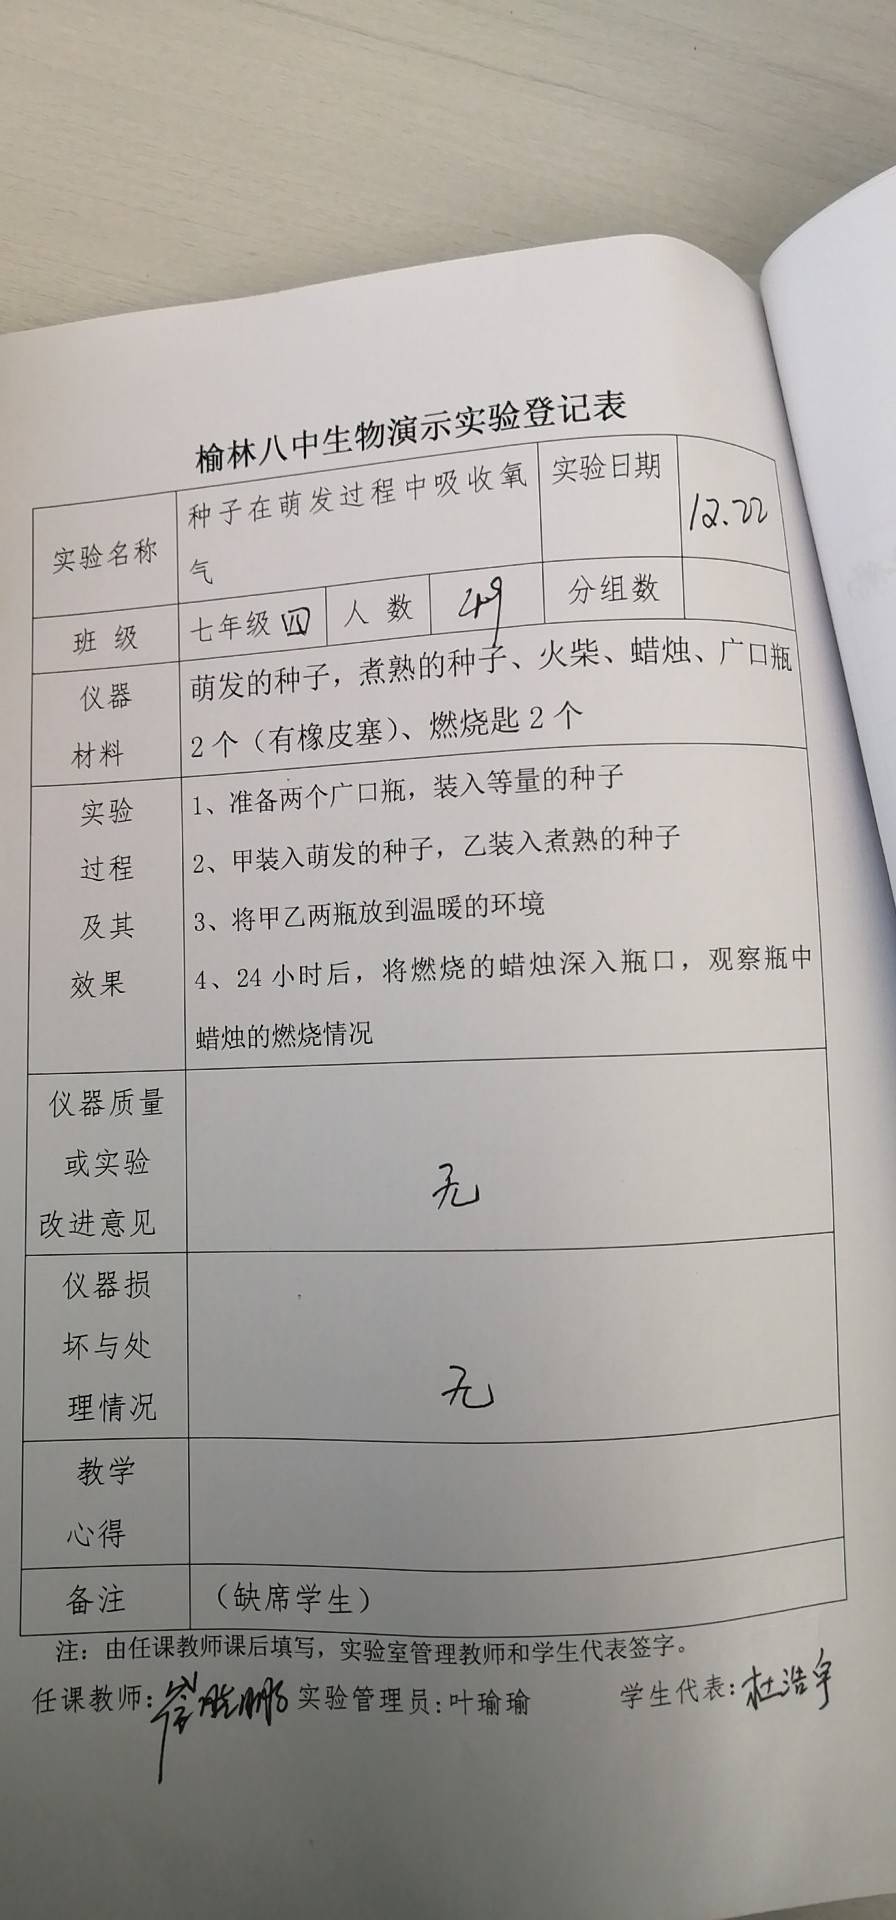 榆林八中生物演示实验登记表
实验名称 种子在萌发过程中吸收氧气 实验日期 12.22
班级 七年级四 人数 49 分组数
仪器材料 萌发的种子，煮熟的种子、火柴、蜡烛、广口瓶
2个（有橡皮塞）、燃烧匙2个
实验过程及其效果 1、准备两个广口瓶，装入等量的种子
2、甲装入萌发的种子，乙装入煮熟的种子
3、将甲乙两瓶放到温暖的环境
4、24小时后，将燃烧的蜡烛深入瓶口，观察瓶中
蜡烛的燃烧情况
仪器质量或实验改进意见 无
仪器损坏与处理情况 无
教学心得
备注 （缺席学生）
注：由任课教师课后填写，实验室管理教师和学生代表签字。
任课教师： 实验管理员：叶瑜瑜 学生代表：杜浩宇